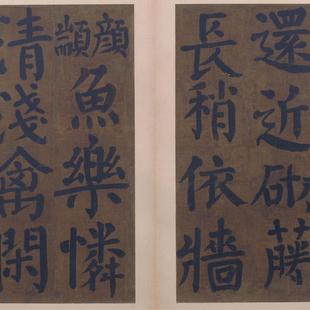 還近砌藤
長稍依牆
顏
魚樂憐
清淺禽閑